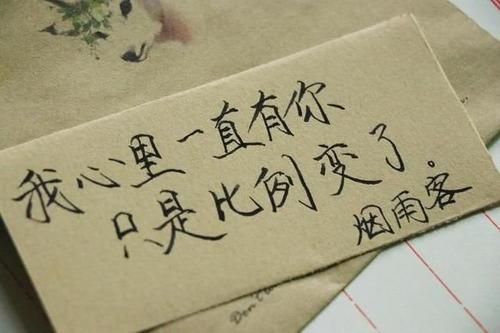 我心里一直有你
只是比例变了。
烟雨客